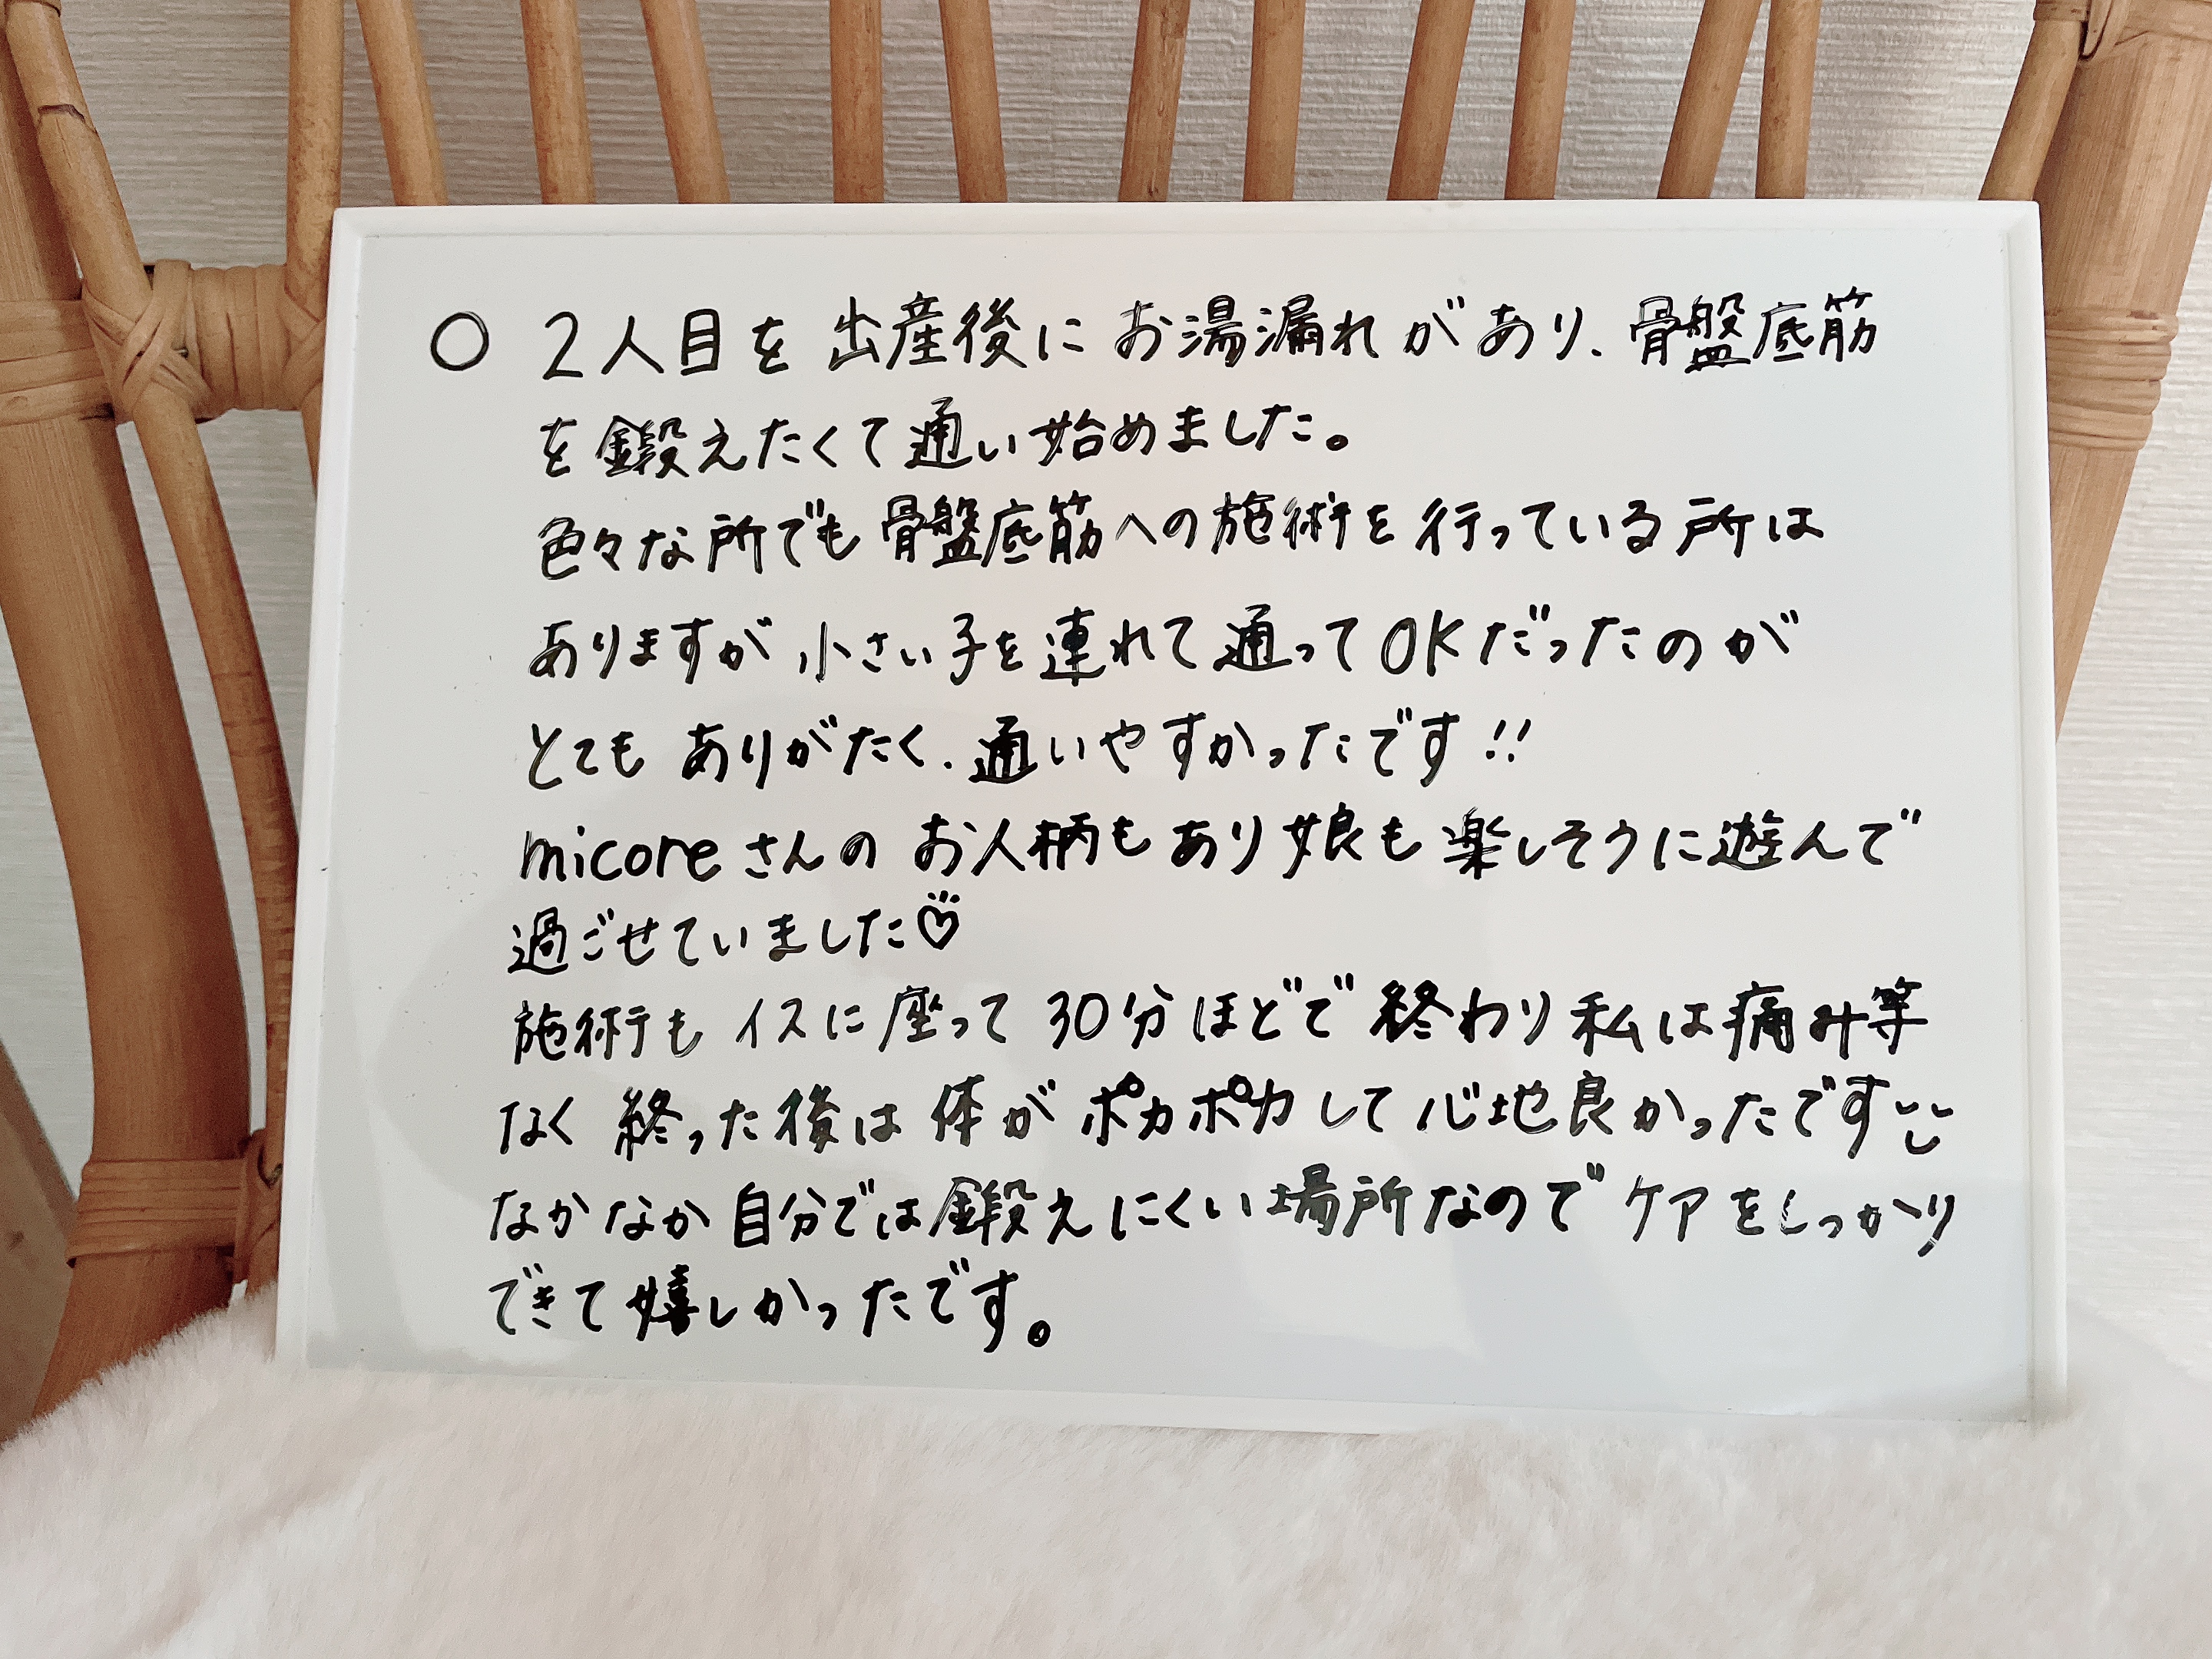 ○ 2人目を出産後にお湯漏れがあり、骨盤底筋
を鍛えたくて通い始めました。
色々な所でも骨盤底筋への施術を行っている所は
ありますが小さい子を連れて通ってOKだったのが
とてもありがたく、通いやすかったです!!
micoreさんのお人柄もあり娘も楽しそうに遊んで
過ごせていました♡
施術もイスに座って30分ほどで終わり私は痛み等
なく終った後は体がポカポカして心地良かったです
なかなか自分では鍛えにくい場所なのでケアをしっかり
できて嬉しかったです。